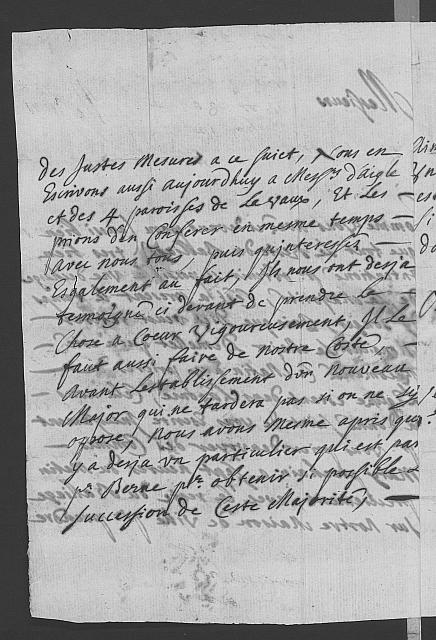 des Justes Mesures a ce sujet, Nous en
Escrivons aussi aujourdhuy a Mess.rs d'aigle
et des 4 paroisses de Lavaux, Et Les
prions d'en Conferer en mesme temps
avec nous tous, puis qu'interessés
Esgalement au fait, Ils nous ont desja
tesmoigné ci devant de prendre Le
Chose a Coeur Vigoureusement, Il Le
faut aussi faire de nostre Costé
avant L'establissement d'un nouveau
Major qui ne tardera pas si on ne s'y
oppose, Nous avons mesme apris que
y a desja un particulier qui est par
p.r Berne p.r obtenir si possible
succession de Ceste Majorité,